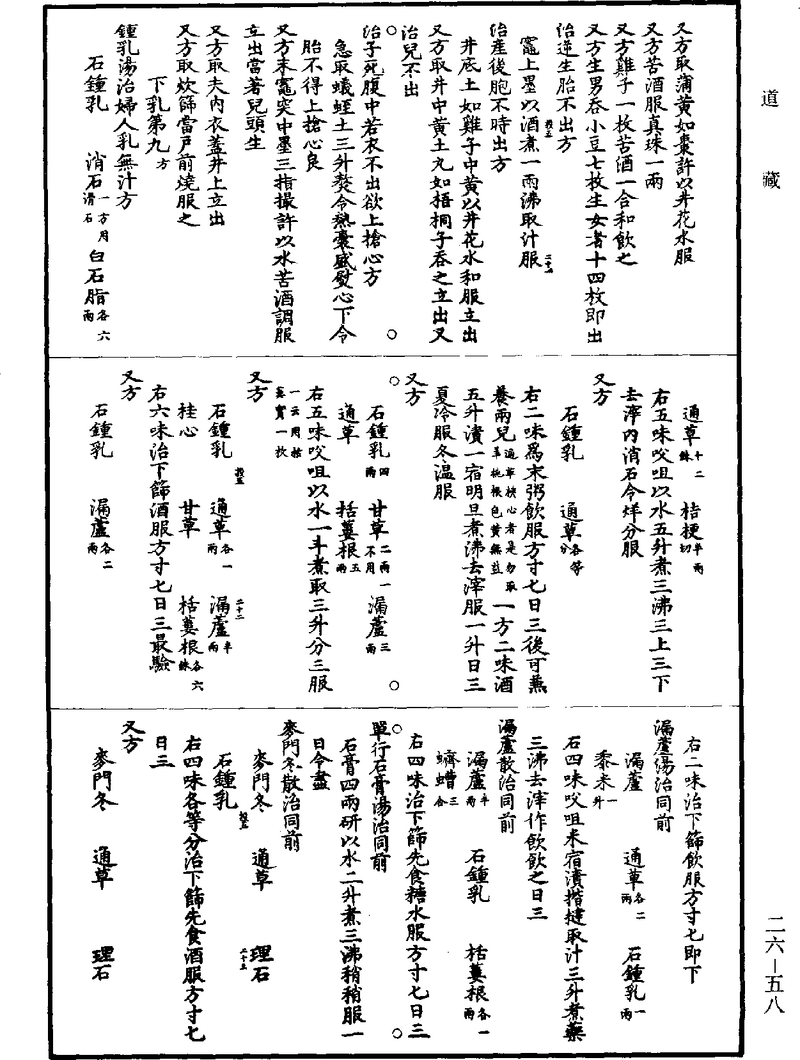 道藏
又方取蒲黃如棗許以井花水服
又方苦酒服真珠一兩
又方雞子一枚苦酒一合和飲之
又方生男吞小豆七枚生女者十四枚即出
治逆生胎不出方
竈上墨以酒煮一兩沸取汁服
治產後胞不時出方
井底土如雞子中黃以井花水和服立出
又方取井中黃土丸如梧桐子吞之立出又
治兒不出
治子死腹中若衣不出欲上搶心方
急取蟻蛭土三升熬令熱囊盛熨心下令
胎不得上搶心良
又方末竈突中墨三指撮許以水苦酒調服
立出當著兒頭生
又方取夫內衣蓋井上立出
又方取炊篩當戶前燒服之
下乳第九方
鍾乳湯治婦人乳無汁方
石鍾乳 消石一方用滑石 白石脂各六兩
通草十二銖 桔梗半兩切
右五味㕮咀以水五升煮三沸三上三下
去滓內消石令烊分服
又方
石鍾乳 通草各等分
右二味為末粥飲服方寸匕日三後可兼
養兩兒通草橫心者是勿取羊桃根色黃無益一方二味酒
五升漬一宿明旦煮沸去滓服一升日三
夏冷服冬溫服
又方
石鍾乳四兩 甘草二兩一不用 漏蘆三兩
通草 栝蔞根五兩
右五味㕮咀以水一斗煮取三升分三服
一云用栝蔞實一枚
又方
石鍾乳 通草各一兩 漏蘆半兩
桂心 甘草 栝蔞根各六銖
右六味治下篩酒服方寸匕日三最驗
又方
石鍾乳 漏蘆各二兩
右二味治下篩飲服方寸匕即下
漏蘆湯治同前
漏蘆 通草各二兩 石鍾乳一兩
黍米一升
右四味㕮咀米宿漬揩撻取汁三升煮藥
三沸去滓作飲飲之日三
漏蘆散治同前
漏蘆半兩 石鍾乳 栝蔞根各一兩
蠐螬三合
右四味治下篩先食糖水服方寸匕日三
單行石膏湯治同前
石膏四兩研以水二升煮三沸稍稍服一
日令盡
麥門冬散治同前
麥門冬 通草 理石
石鍾乳
右四味各等分治下篩先食酒服方寸匕
日三
又方
麥門冬 通草 理石
二六—五八